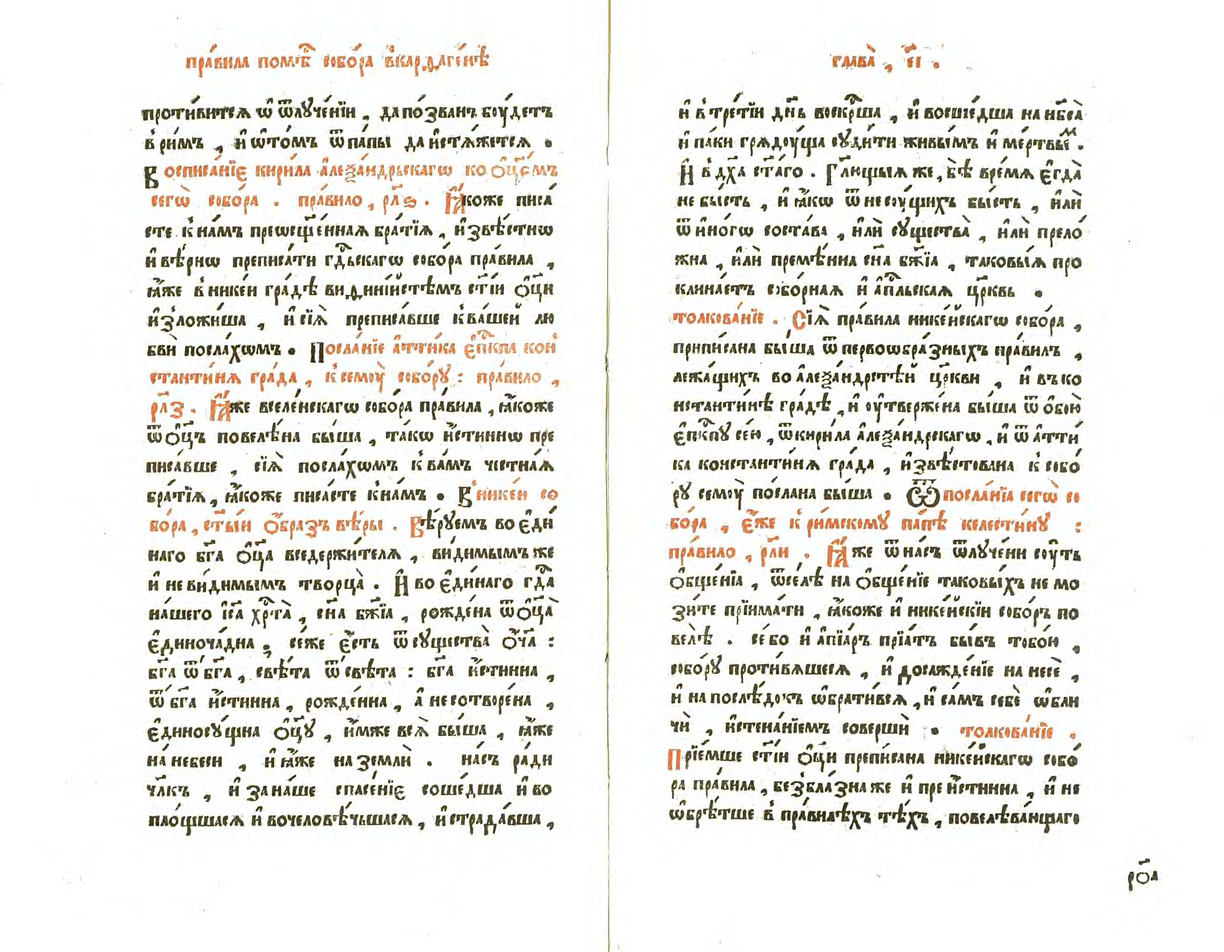 пра́вила поме́с собо́ра в̾карѳаге́нѣ
проти́витсѧ ѡ҆ ѿлꙋче́нїи , да по́званъ бꙋ́детъ
в̾ ри́мъ , и҆ ѡ҆то́мъ ѿ па́пы да и҆стѧ́жетсѧ .
Восписа́нїе кири́ла а҆леѯа́ндрьскагѡ ко ѻ҆ц҃е́мъ
сегѡ̀ собо́ра . пра́вило , рл҃ѕ . Ꙗ҆́коже писа́
сте к̾ на́мъ пресщ҃е́ннаѧ бра́тїѧ , и҆звѣ́стнѡ
и҆ вѣ́рнѡ преписа́ти гд҇ьскагѡ собо́ра пра́вила ,
ꙗ҆̀же в̾ нике́и гра́дѣ виѳинї́йстѣмъ ст҃і́и ѻ҆ц҃ы
и҆зложи́ша , и҆ сїѧ̀ преписа́вше к̾ ва́шей лю
бвѝ посла́хомъ . Посла́нїе а҆́ттика є҆пкⷭ҇па кон
стантинѧ гра́да , к̾ семꙋ̀ собо́рꙋ : пра́вило ,
рл҃з . Ꙗ҆̀же вселе́нскагѡ собо́ра пра́вила , ꙗ҆́коже
ѿ ѻ҆ц҃ъ повелѣ́на бы́ша , та́кѡ и҆́стиннѡ пре
писа́вше , сїѧ̀ посла́хомъ к̾ ва́мъ честна́ѧ
бра́тїѧ , ꙗ҆́коже писа́сте к̾ на́мъ . В̾ нике́и со
бо́ра , ст҃ы́и ѻ҆́бразъ вѣ́ры . Вѣ́рꙋемъ во є҆ди́
наго бг҃а ѻ҆ц҃а̀ вседержи́телѧ , ви́димымъ же
и҆ неви́димымъ творца̀ . И҆ во є҆ди́наго гдⷭ҇а
на́шего і҆с҃а хрⷭ҇та̀ , сн҃а бж҃їа , рожде́на ѿ ѻ҆ц҃а̀
є҆диноча́дна , се́же є҆́сть ѿ сꙋщества̀ ѻ҆́ч҃а :
бг҃а ѿ бг҃а , свѣ́та ѿ свѣ́та : бг҃а и҆́стинна ,
ѿ бг҃а и҆́стинна , рожде́нна , а҆ не сотворе́на ,
є҆диносꙋ́щна ѻ҆ц҃ꙋ̀ , и҆́мже всѧ̀ бы́ша , ꙗ҆̀же
на небесѝ , и҆ ꙗ҆̀же на землѝ . на́съ ра́ди
чл҃къ , и҆ за на́ше спасе́нїе соше́дша и҆ во
пло́щшасѧ и҆ вочеловѣ́чьшасѧ , и҆ страда́вша ,
глава̀ , є҃і .
и҆ в̾ тре́тїи дн҃ь воскрⷭ҇ша , и҆ восше́дша на нб҃са̀
и҆ па́ки грѧдꙋ́ща сꙋди́ти живы́мъ и҆ ме́ртвыⷨ .
И҆ в̾ дх҃а ст҃а́го . Гл҃ющыѧ же , бѣ̀ вре́мѧ є҆гда̀
не бы́сть , и҆ ꙗ҆́кѡ ѿ не сꙋ́щихъ бы́сть , и҆лѝ
ѿ и҆но́гѡ соста́ва , и҆лѝ сꙋщества̀ , и҆лѝ прело́
жна , и҆лѝ премѣ́нна сн҃а бж҃їа , таковы́ѧ про
клина́етъ собо́рнаѧ и҆ а҆пⷭ҇льскаѧ цр҃квь .
толкова́нїе . Сїѧ̀ пра́вила нике́йскагѡ собо́ра ,
припи́сана бы́ша ѿ первоѡбра́зныхъ пра́вилъ ,
лежа́щихъ во а҆леѯандрсте́й цр҃кви , и҆ въ ко
нстантинѣ гра́дѣ , и҆ ᲂу҆твержена бы́ша ѿ ѻ҆бою̀
є҆пкⷭ҇пꙋ сею̀ , ѿ кири́ла а҆леѯа́ндрскагѡ , и҆ ѿ а҆тти́
ка константинѧ гра́да , и҆звѣ́стована к̾ собо́
рꙋ семꙋ̀ по́слана бы́ша . Ѿ посла́нїѧ сегѡ̀ со
бо́ра , є҆́же к̾ ри́мскомꙋ па́пѣ келести́нꙋ :
пра́вило , рл҃и . Ꙗ҆̀же ѿ на́съ ѿлꙋче́ни сꙋ́ть
ѻ҆бще́нїа , ѿсе́лѣ на ѻ҆бще́нїе таковы́хъ не мо
зи́те прїима́ти , ꙗ҆́коже и҆ нике́йскїи собо́ръ по
велѣ̀ . се́ бо и҆ а҆пїа́ръ прїѧ́тъ бы́въ тобо́ю ,
собо́рꙋ проти́вѧшесѧ , и҆ досажде́нїе на несѐ ,
и҆ на послѣ́докъ ѡ҆брати́всѧ , и҆ са́мъ себѐ ѡ҆бли
чѝ , и҆ стена́нїемъ совершѝ . толкова́нїе .
Прїе́мше ст҃і́и ѻ҆ц҃ы препи́сана нике́йскагѡ собо́
ра пра́вила , безбла́зна же и҆ преи́стинна , и҆ не
ѡ҆брѣ́тше в̾ пра́вилѣхъ тѣ́хъ , повелѣва́ющаго
рѻ҃а